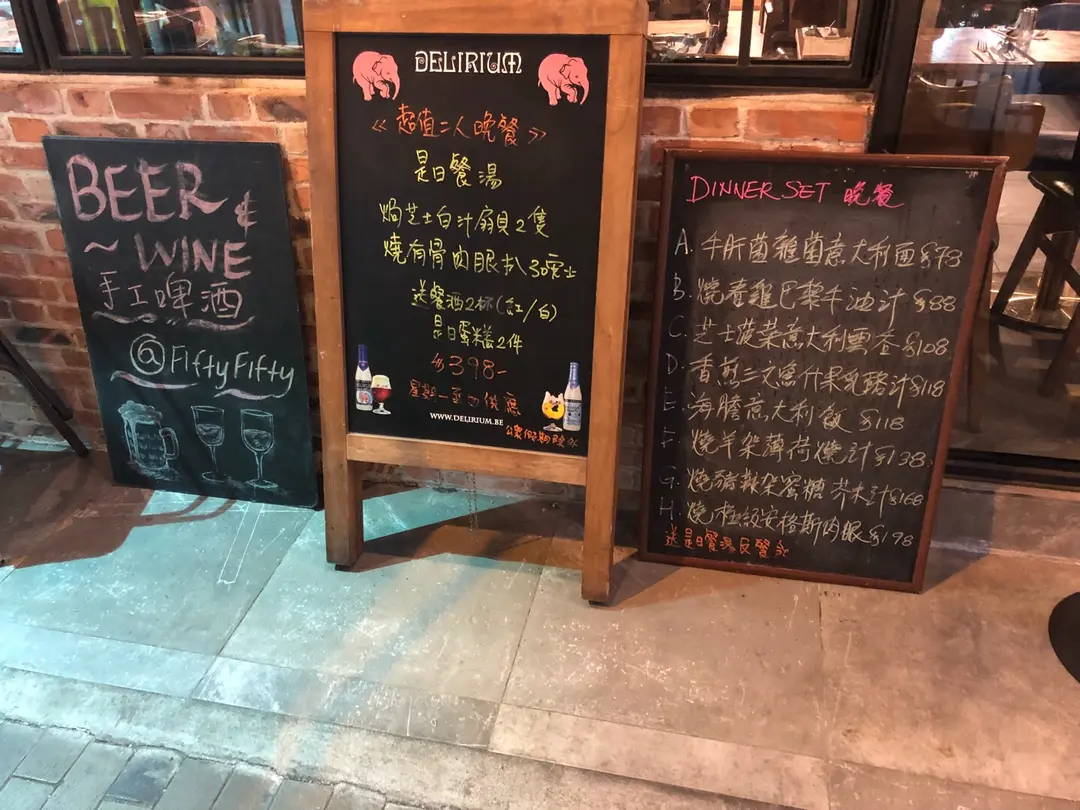 BEER &
~ WINE
手工啤酒
@FiftyFifty
DELIRIUM
《超值二人晚餐》
是日餐湯
焗芝士白汁扇貝2隻
燒有骨肉眼扒30安士
送餐酒2杯(紅/白)
是日蛋糕2件
$398-
星期一至四供應
WWW.DELIRIUM.BE
公眾假期除外
DINNER SET 晚餐
A. 牛肝菌雜菌意大利面 $78
B. 燒春雞巴黎牛油汁 $88
C. 芝士菠菜意大利雲吞 $108
D. 香煎三文魚什果乳酪汁 $118
E. 海膽意大利飯 $118
F. 燒羊架薄荷燒汁 $138
G. 燒豬鞍架蜜糖芥末汁 $168
H. 燒極級安格斯肉眼 $198
送是日餐湯及餐飲